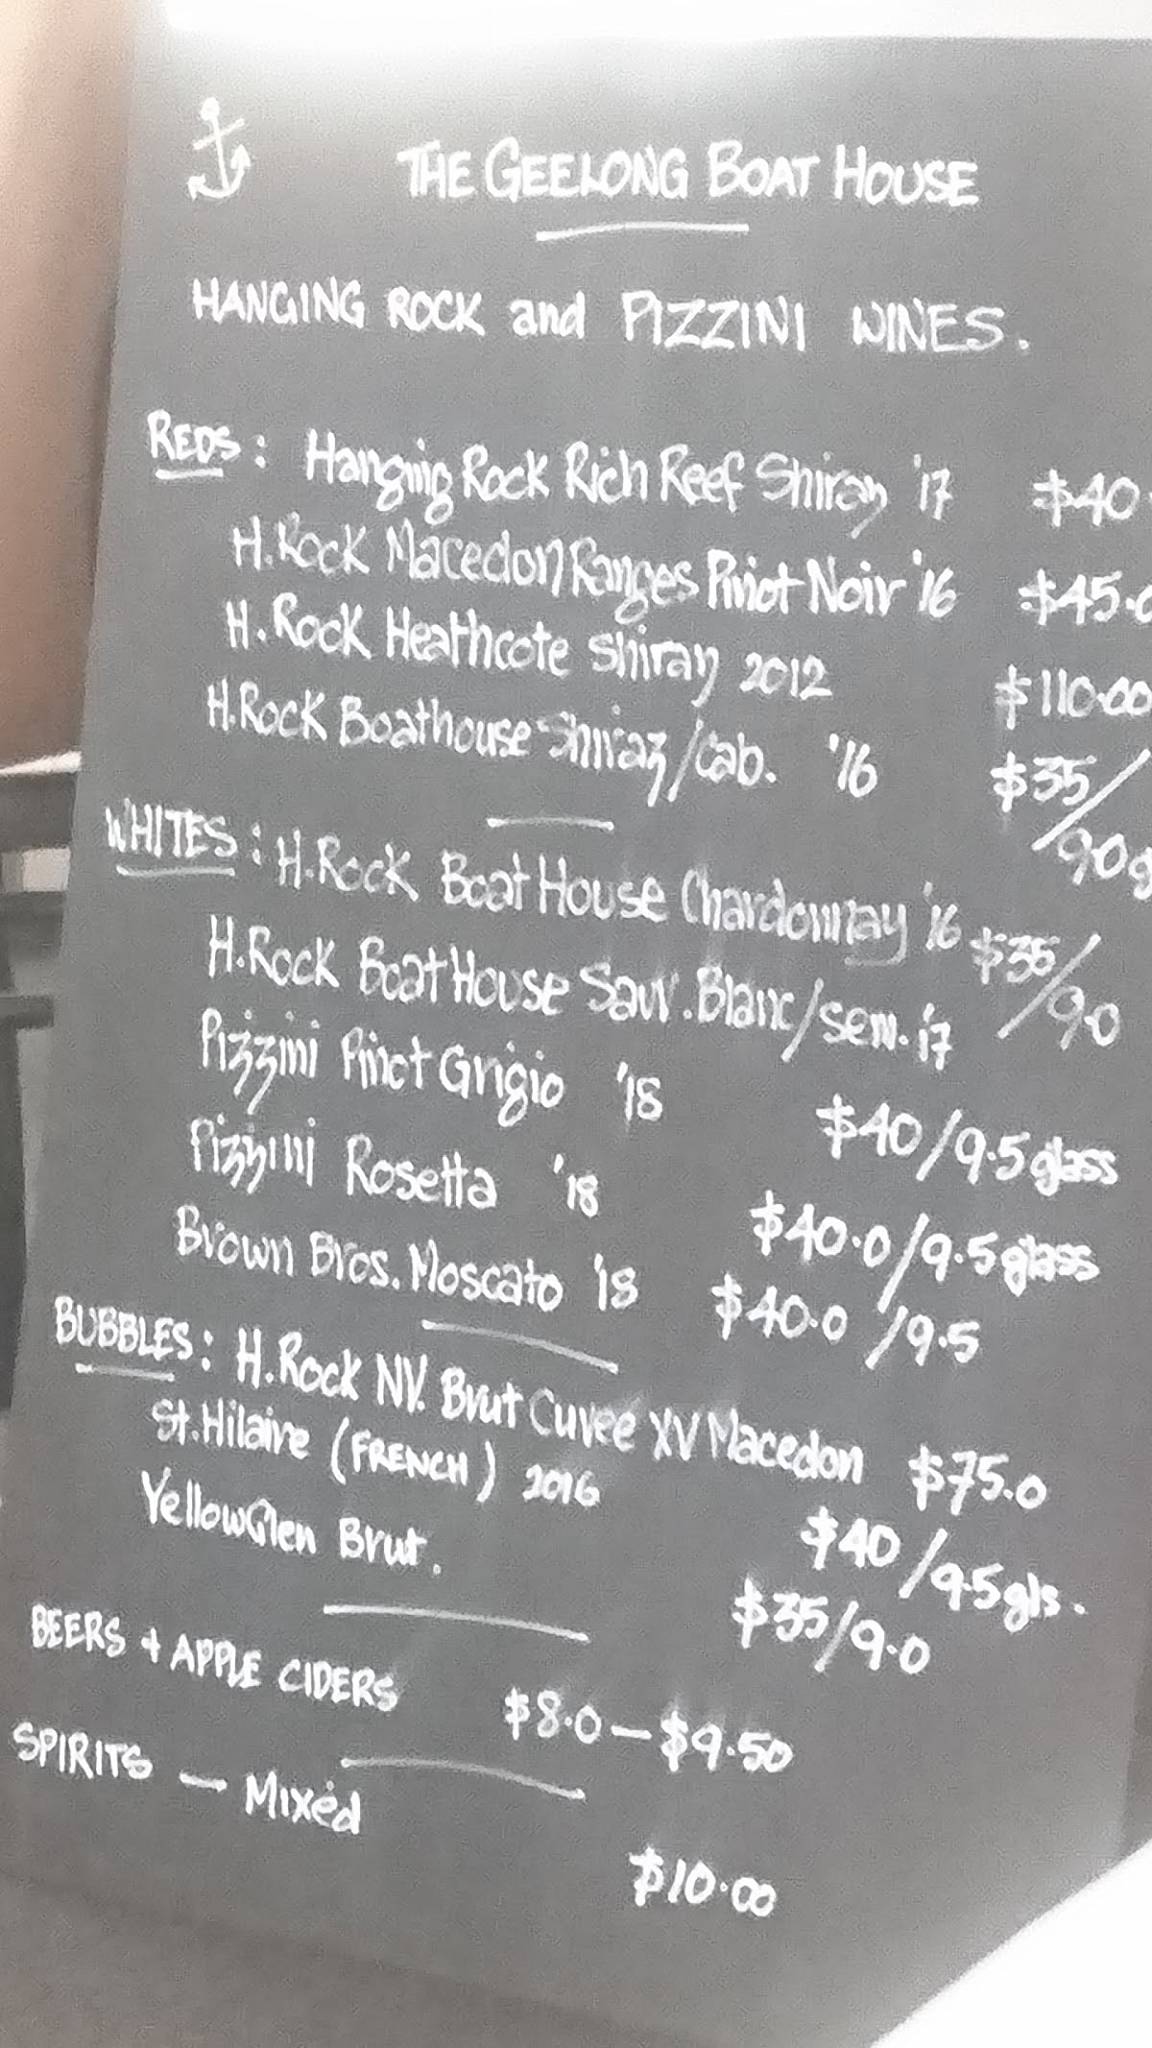 THE GEELONG BOAT HOUSE
HANGING ROCK and PIZZINI WINES.
REDS: Hanging Rock Rich Reef Shiraz '17 $40
H.Rock Macedon Ranges Pinot Noir '16 $45.0
H.Rock Heathcote Shiraz 2012 $110.00
H.Rock Boathouse Shiraz/Cab. '16 $35/
9.0g
WHITES: H.Rock Boat House Chardonnay '16 $35/
9.0
H.Rock Boat House Sauv.Blanc/sem. '17
Pizzini Pinot Grigio '18 $40/9.5 glass
Pizzini Rosetta '18 $40.0/9.5 glass
Brown Bros. Moscato '18 $40.0/9.5
BUBBLES: H.Rock NV. Brut Cuvee XV Macedon $75.0
St.Hilaire (FRENCH) 2016 $40/9.5 gls.
YellowGlen Brut. $35/9.0
BEERS + APPLE CIDERS $8.0—$9.50
SPIRITS — Mixed $10.00